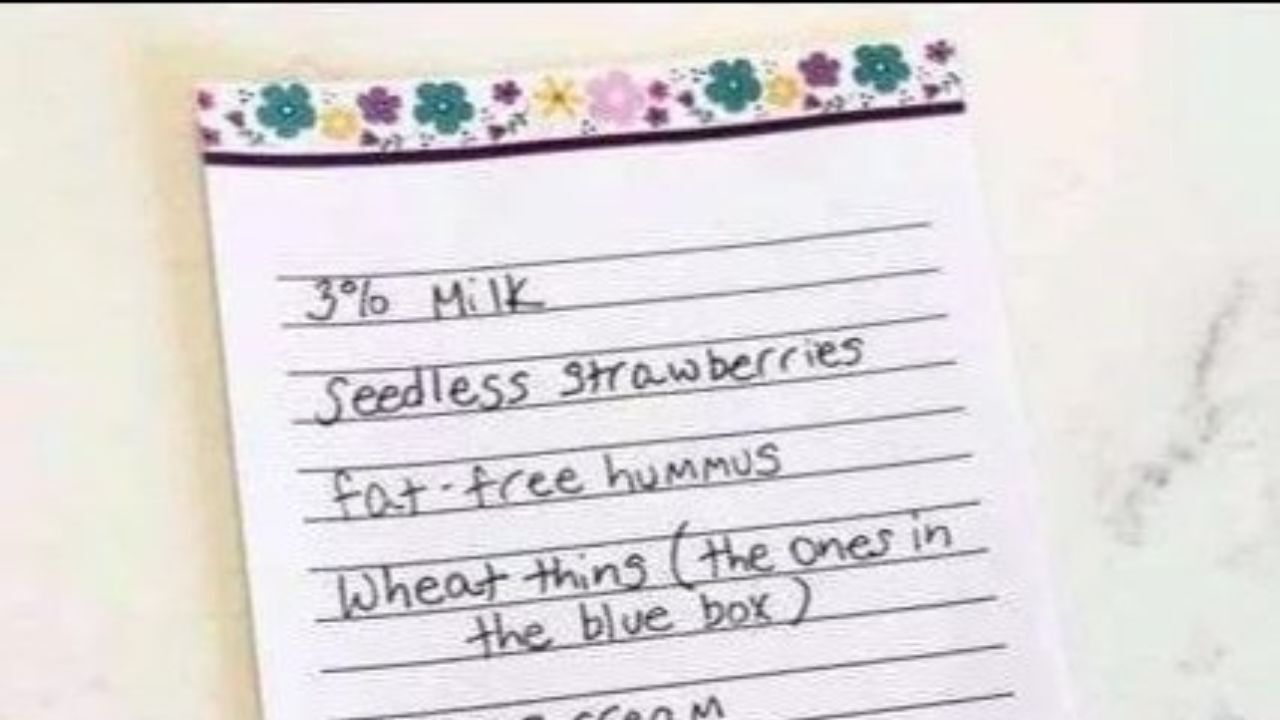 3% Milk
Seedless strawberries
fat-free hummus
Wheat thing (the ones in
the blue box)